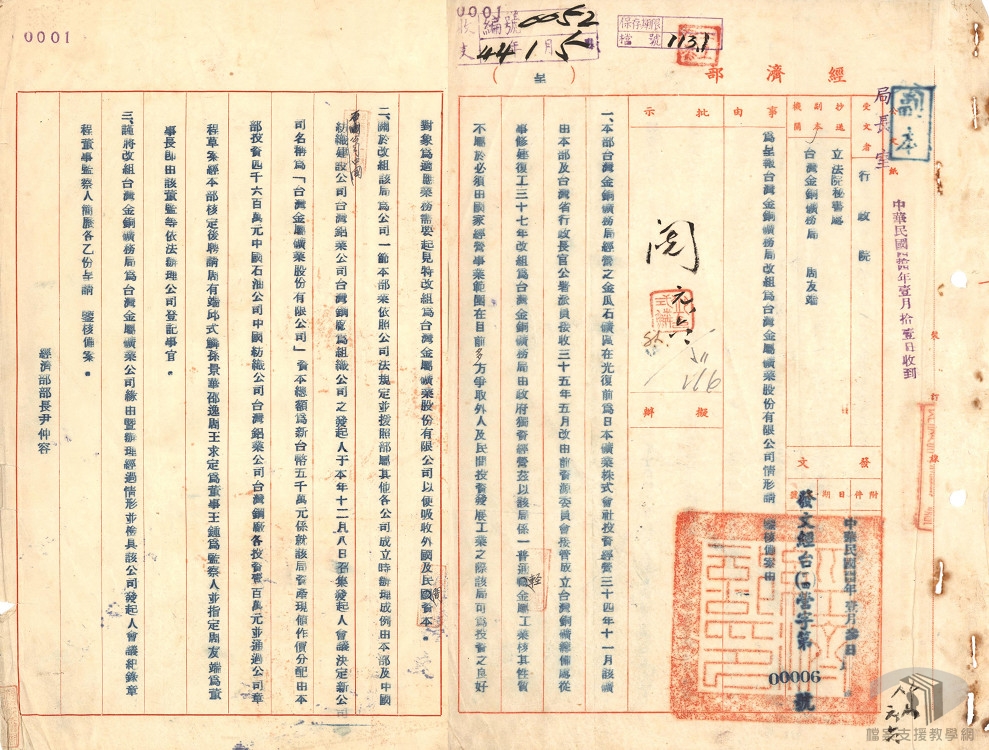 0001
收 編號 0052
文 44年1月5
保存期限
檔號 113.1
經濟部
（呈）
副本
局長室
中華民國四拾四年壹月拾壹日收到
裝
訂
線
受文者
行政院
抄送副本機關
立法院秘書處
台灣金銅礦務局 周友端
事由
為呈報台灣金銅礦務局改組為台灣金屬礦業股份有限公司情形請
鑒核備案由
批示
閱
擬辦
發文
附件
日期
號
中華民國四四年壹月參日
發文經台(四四)營字第00006號
一、本部台灣金銅礦務局經營之金瓜石礦區在光復前為日本礦業株式會社投資經營三十四年十一月該礦
由本部及台灣省行政長官公署派員接收三十五年五月改由前資源委員會接管成立台灣銅礦籌備處從
事修建復工三十七年改組為台灣金銅礦務局由政府獨資經營茲以該局係一普通輕金屬工業核其性質
不屬於必須由國家經營事業範圍在目前多方爭取外人及民間投資發展工業之際該局可為投資之良好
0001
對象為適應業務需要起見特改組為台灣金屬礦業股份有限公司以便吸收外國及民國資本。
二、關於改組該局為公司一節本部業依照公司法規定並援照部屬其他各公司成立時辦理成例由本部及中國
石油公司中國
紡織建設公司台灣鋁業公司台灣銅廠為組織公司之發起人于本年十二月八日召集發起人會議決定新公
司名稱為「台灣金屬礦業股份有限公司」資本總額為新台幣五千萬元係就該局資產現值作價分配由本
部投資四千六百萬元中國石油公司中國紡織公司台灣鋁業公司台灣銅廠各投資壹百萬元並通過公司章
程草案經本部核定後聘請周有端邱式麟孫景華邵逸周王求定為董事王鍾為監察人並指定周友端為董
事長即由該董監等依法辦理公司登記事宜。
三、謹將改組台灣金銅礦務局為台灣金屬礦業公司緣由暨辦理經過情形並檢具該公司發起人會議紀錄章
程董事監察人簡歷各乙份呈請 鑒核備案。
經濟部部長尹仲容
檔案支援教學網